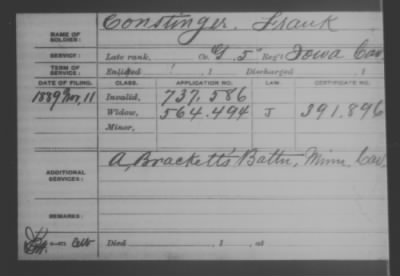 NAME OF SOLDIER: Constinger, Frank
SERVICE: Late rank, Co. G, 5" Reg't Iowa Cav.
TERM OF SERVICE: Enlisted , 1 Discharged , 1
DATE OF FILING. CLASS. APPLICATION NO. LAW. CERTIFICATE NO.
1889 Nov, 11 Invalid, 737,586
Widow, 564.494 J 391.896
Minor,
ADDITIONAL SERVICES: A, Brackett's Battn, Minn, Cav,
REMARKS:
Died , 1 , at